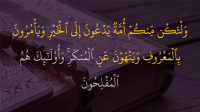 وَلْتَكُن مِّنكُمْ أُمَّةٌ يَدْعُونَ إِلَى الْخَيْرِ وَيَأْمُرُونَ
بِالْمَعْرُوفِ وَيَنْهَوْنَ عَنِ الْمُنكَرِ ۚ وَأُولَٰئِكَ هُمُ
الْمُفْلِحُونَ